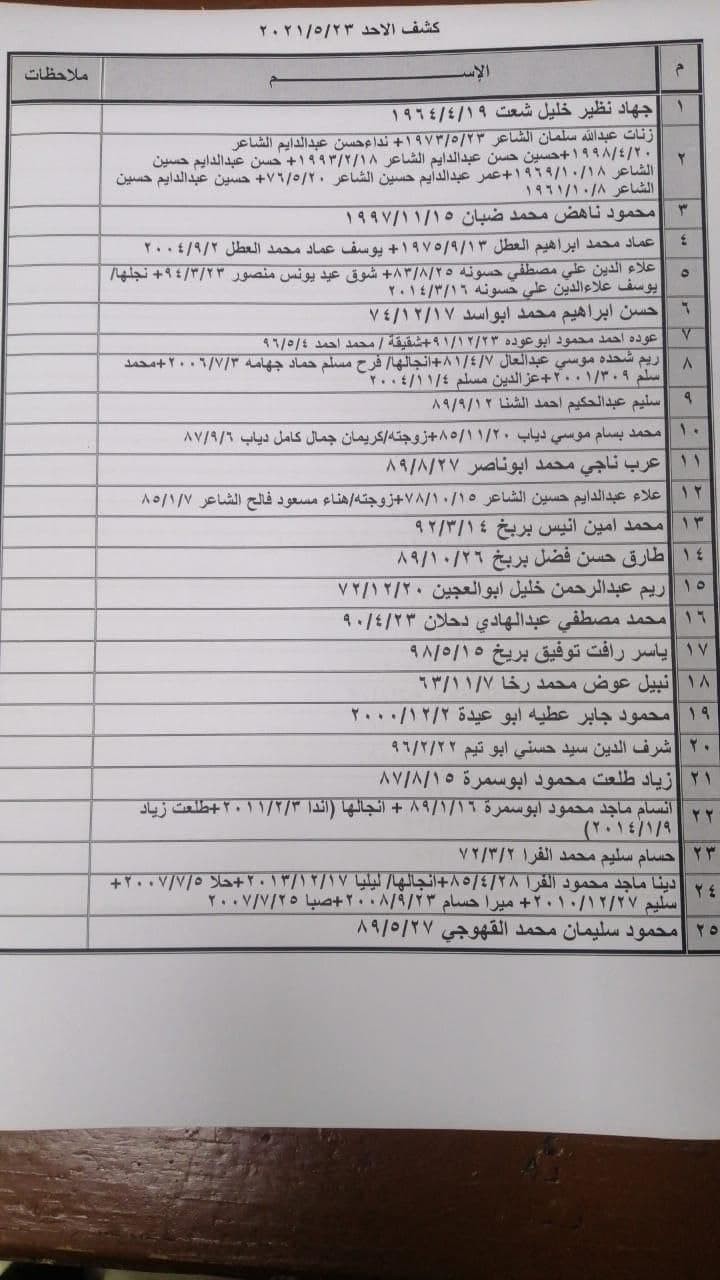 كشف الاحد ٢٠٢١/٥/٢٣
م الإســـــــم ملاحظات
١ جهاد نظير خليل شعت ١٩٦٤/٤/١٩
زنات عبدالله سلمان الشاعر ١٩٧٣/٥/٢٣+ نداءحسن عبدالدايم الشاعر
٢ ١٩٩٨/٤/٢٠+حسين حسن عبدالدايم الشاعر ١٩٩٣/٢/١٨+ حسن عبدالدايم حسين
الشاعر ١٩٦٩/١٠/١٨+عمر عبدالدايم حسين الشاعر ٧٦/٥/٢٠+ حسين عبدالدايم حسين
الشاعر ١٩٦١/١٠/٨
٣ محمود ناهض محمد ضبان ١٩٩٧/١١/١٥
٤ عماد محمد ابراهيم العطل ١٩٧٥/٩/١٣+ يوسف عماد محمد العطل ٢٠٠٤/٩/٢
٥ علاء الدين علي مصطفي حسونه ٨٣/٨/٢٥+ شوق عيد يونس منصور ٩٤/٣/٢٣+ نجلها/
يوسف علاءالدين علي حسونه ٢٠١٤/٣/١٦
٦ حسن ابراهيم محمد ابواسد ٧٤/١٢/١٧
٧ عوده احمد محمود ابوعوده ٩١/١٢/٢٣+شقيقة / محمد احمد ٩٦/٥/٤
٨ ريم شحده موسي عبدالعال ٨١/٤/٧+انجالها/ فرح مسلم حماد جهامه ٢٠٠٦/٧/٣+محمد
سلم ٢٠٠١/٣٠٩+عزالدين مسلم ٢٠٠٤/١١/٤
٩ سليم عبدالحكيم احمد الشنا ٨٩/٩/١٢
١٠ محمد بسام موسي دياب ٨٥/١١/٢٠+زوجته/كريمان جمال كامل دياب ٨٧/٩/٦
١١ عرب ناجي محمد ابوناصر ٨٩/٨/٢٧
١٢ علاء عبدالدايم حسين الشاعر ٧٨/١٠/١٥+زوجته/هناء مسعود فالح الشاعر ٨٥/١/٧
١٣ محمد امين انيس بربخ ٩٢/٣/١٤
١٤ طارق حسن فضل بربخ ٨٩/١٠/٢٦
١٥ ريم عبدالرحمن خليل ابوالعجين ٧٢/١٢/٢٠
١٦ محمد مصطفي عبدالهادي دحلان ٩٠/٤/٢٣
١٧ ياسر رافت توفيق بريخ ٩٨/٥/١٥
١٨ نبيل عوض محمد رخا ٦٣/١١/٧
١٩ محمود جابر عطيه ابو عيدة ٢٠٠٠/١٢/٢
٢٠ شرف الدين سيد حسني ابو تيم ٩٦/٢/٢٢
٢١ زياد طلعت محمود ابوسمرة ٨٧/٨/١٥
٢٢ انسام ماجد محمود ابوسمرة ٨٩/١/١٦ + انجالها (اندا ٢٠١١/٢/٣+طلعت زياد
٢٠١٤/١/٩)
٢٣ حسام سليم محمد الفرا ٧٢/٣/٢
٢٤ دينا ماجد محمود الفرا ٨٥/٤/٢٨+انجالها/ ليليا ٢٠١٣/١٢/١٧+حلا ٢٠٠٧/٧/٥+
سليم ٢٠١٠/١٢/٢٧+ ميرا حسام ٢٠٠٨/٩/٢٣+صبا ٢٠٠٧/٧/٢٥
٢٥ محمود سليمان محمد القهوجي ٨٩/٥/٢٧